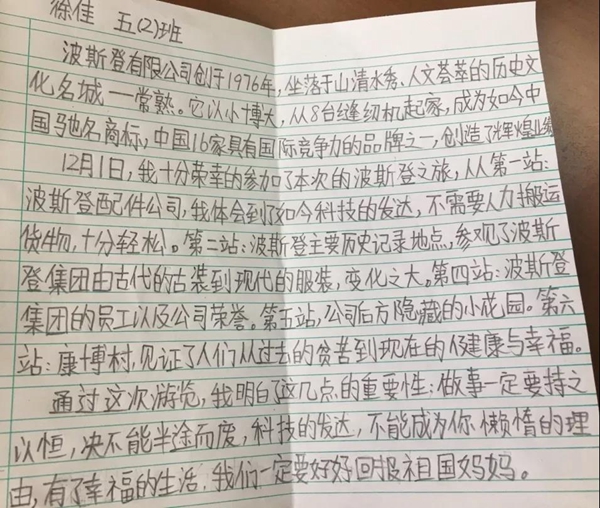 徐佳 五(2)班
波斯登有限公司创于1976年,坐落于山清水秀、人文荟萃的历史文
化名城一常熟。它以小博大,从8台缝纫机起家,成为如今中
国驰名商标,中国16家具有国际竞争力的品牌之一,创造了辉煌业绩
12月1日,我十分荣幸的参加了本次的波斯登之旅,从第一站:
波斯登配件公司,我体会到了如今科技的发达,不需要人力搬运
货物,十分轻松。第二站:波斯登主要历史记录地点,参观了波斯
登集团由古代的古装到现代的服装,变化之大。第四站:波斯登
集团的员工以及公司荣誉。第五站,公司后方隐藏的小花园。第六
站:康博村,见证了人们从过去的贫苦到现在的健康与幸福。
通过这次游览,我明白了这几点的重要性:做事一定要持之
以恒,决不能半途而废,科技的发达,不能成为你懒惰的理
由,有了幸福的生活,我们一定要好好回报祖国妈妈。